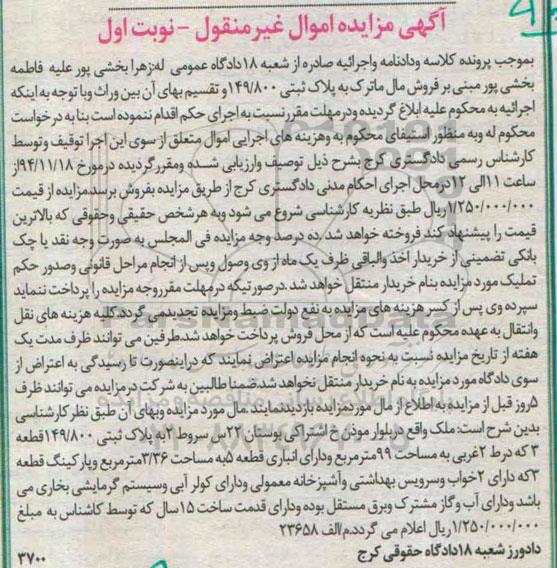 آگهی مزایده اموال غیر منقول - نوبت اول
بموجب پرونده کلاسه ودادنامه واجرائیه صادره از شعبه ۱۸دادگاه عمومی له:زهرا بخشی پور علیه فاطمه
بخشی پور مبنی بر فروش مال ماترک به پلاک ثبتی ۱۴۹/۸۰۰و تقسیم بهای آن بین وراث وبا توجه به اینکه
اجرائیه به محکوم علیه ابلاغ گردیده ودرمهلت مقرر نسبت به اجرای حکم اقدام ننموده است بنا به درخواست
محکوم له وبه منظور استیفای محکوم به وهزینه های اجرایی اموال متعلق از سوی این اجرا توقیف وتوسط
کارشناس رسمی دادگستری کرج بشرح ذیل توصیف وارزیابی شده ومقررگردیده درمورخ ۹۴/۱۱/۱۸از
ساعت ۱۱الی ۱۲درمحل اجرای احکام مدنی دادگستری کرج از طریق مزایده بفروش برسد.مزایده از قیمت
۱/۲۵۰/۰۰۰/۰۰۰ریال طبق نظریه کارشناسی شروع می شود وبه هرشخص حقیقی وحقوقی که بالاترین
قیمت را پیشنهاد کند فروخته خواهد شد .ده درصد وجه مزایده فی المجلس به صورت وجه نقد یا چک
بانکی تضمینی از خریدار اخذ والباقی ظرف یک ماه از وی وصول وپس از انجام مراحل قانونی وصدور حکم
تملیک مورد مزایده بنام خریدار منتقل خواهد شد.درصورتیکه درمهلت مقرروجه مزایده را پرداخت ننماید
سپرده وی پس از کسر هزینه های مزایده به نفع دولت ضبط ومزایده تجدیدمی گردد.کلیه هزینه های نقل
وانتقال به عهده محکوم علیه است که از محل فروش پرداخت خواهد شد.طرفین می توانند ظرف مدت یک
هفته از تاریخ مزایده نسبت به نحوه انجام مزایده اعتراض نمایند که دراینصورت تا رسیدگی به اعتراض از
سوی دادگاه مورد مزایده به نام خریدار منتقل نخواهد شد.ضمنا طالبین به شرکت درمزایده می توانند ظرف
۵روز قبل از مزایده به اطلاع از مال موردمزایده بازدیدنمایند .مال مورد مزایده وبهای آن طبق نظر کارشناسی
بدین شرح است: ملک واقع دربلوار موذن خ اشتراکی بوستان ۲۲س سروط۲به پلاک ثبتی ۱۴۹/۸۰۰قطعه
۳ که درط ۲غربی به مساحت ۹۹مترمربع ودارای انباری قطعه ۵به مساحت ۳/۳۶مترمربع وپارکینگ قطعه
۳که دارای ۲خواب وسرویس بهداشتی وآشپزخانه معمولی ودارای کولر آبی وسیستم گرمایشی بخاری می
باشد ودارای آب وگاز مشترک وبرق مستقل بوده ودارای قدمت ساخت ۱۵سال که توسط کاشناس به مبلغ
۱/۲۵۰/۰۰۰/۰۰۰ریال اعلام می گردد.م/الف ۲۳۶۵۸
دادورز شعبه ۱۸دادگاه حقوقی کرج ۳۷۰۰